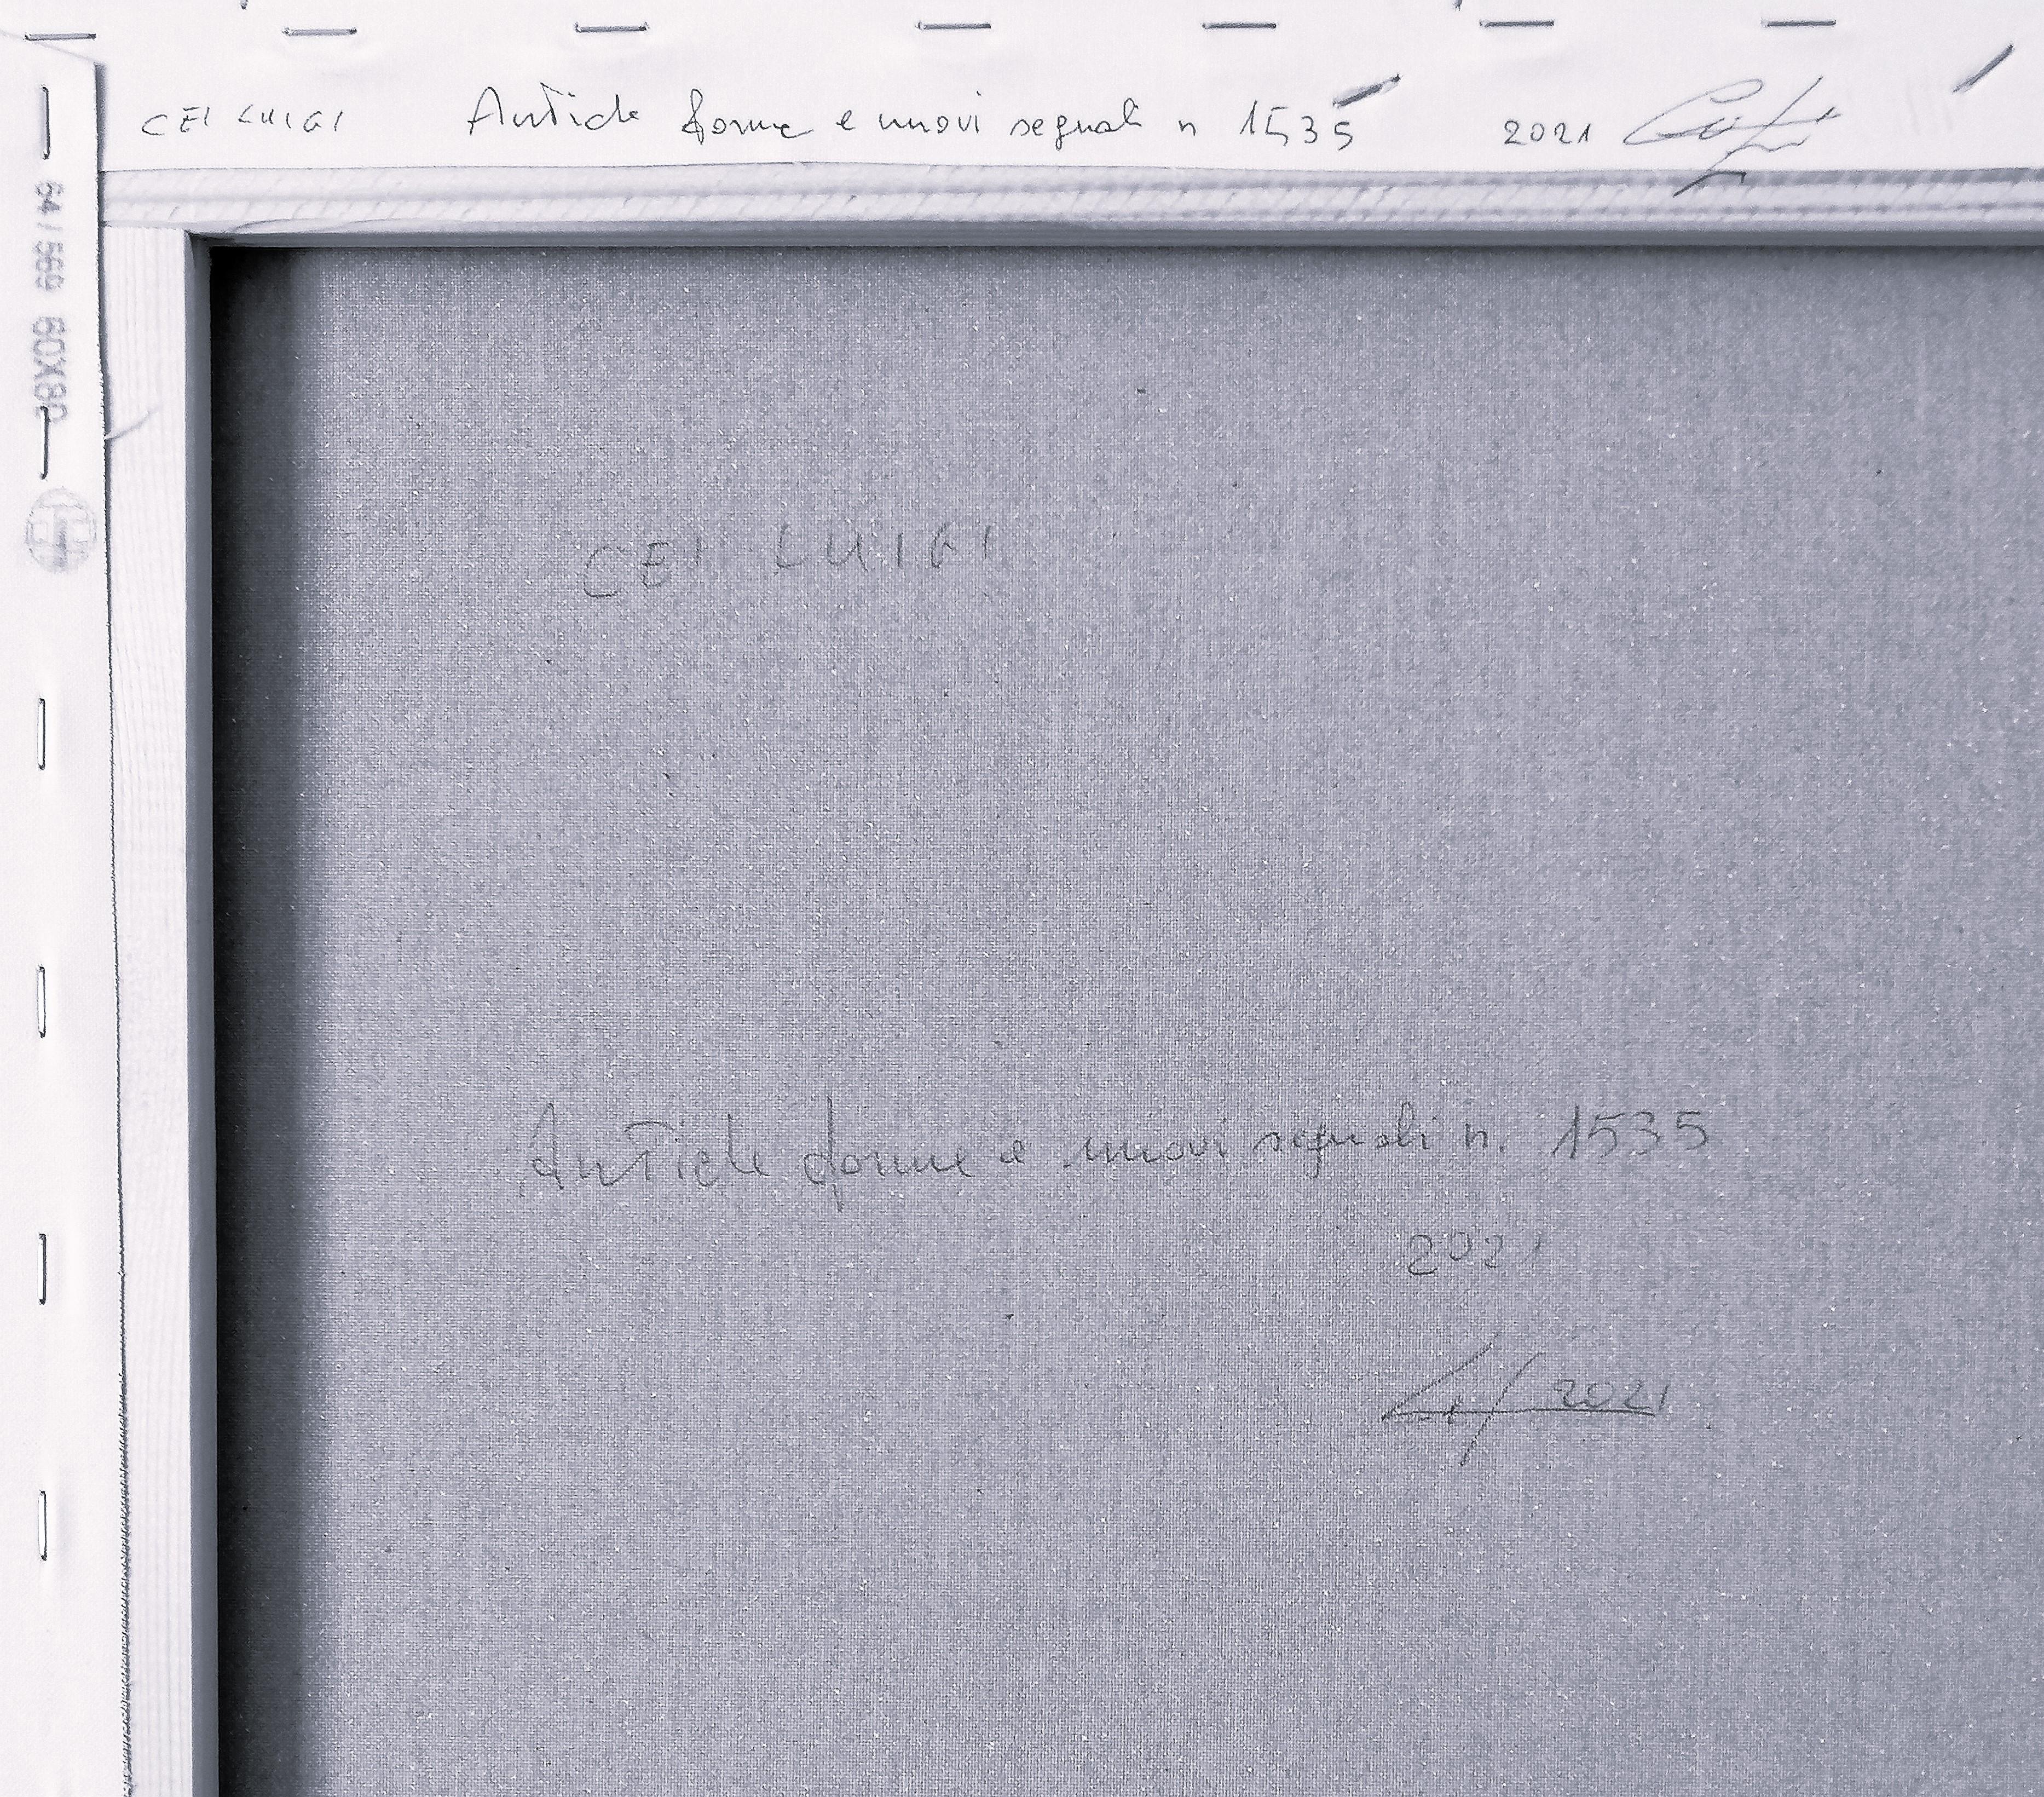 CEI LUIGI Antiche forme e nuovi segnali n 1535 2021
64/569 60X80
CEI LUIGI
Antiche forme e nuovi segnali n. 1535
2021
2021